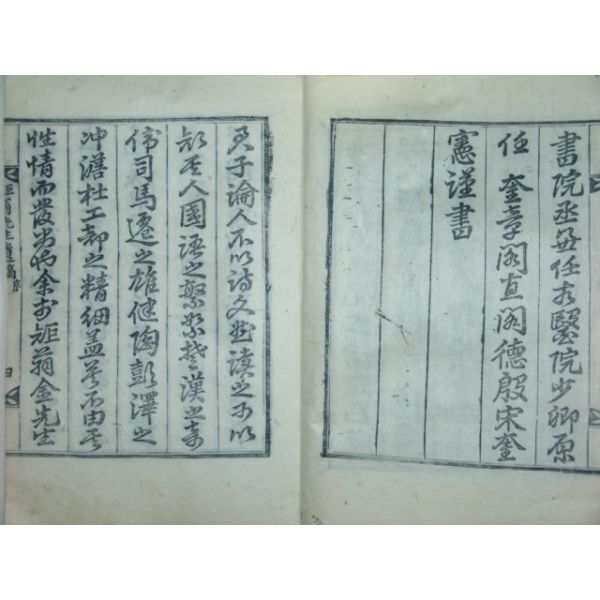 書院丞兼任太醫院少卿原
任 奎章閣直閣德殷宋奎
憲謹書
君子論人不以詩文然讀之可以
知其人國語之繁絮楚漢之奇
偉司馬遷之雄健陶彭澤之
冲澹杜工部之精細盖莫不由其
性情而發者也余於矩翁金先生
矩翁先生遺稿序 四